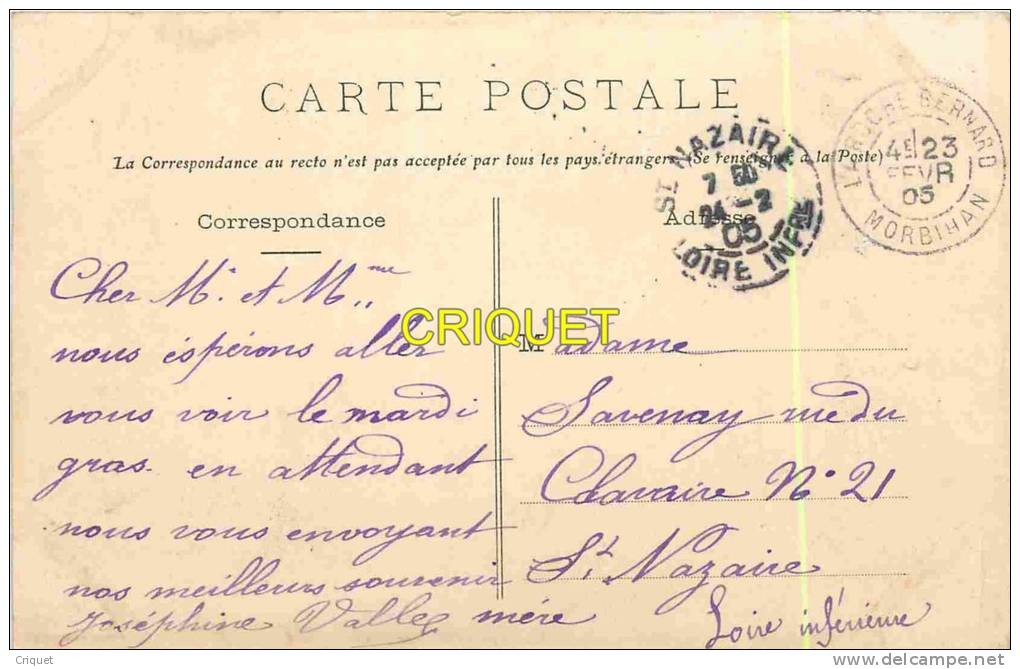 CARTE POSTALE
La Correspondance au recto n'est pas acceptée par tous les pays étrangers (Se renseigner à la Poste)
ST NAZAIRE
7 50
24 - 2
05
LOIRE INFRE
LA ROCHE BERNARD
4E 23
FEVR
05
MORBIHAN
Correspondance
Cher Mr et Mme
nous éspérons aller
vous voir le mardi
gras en attendant
nous vous envoyant
nos meilleurs souvenir
Joséphine Vallee mére
Adresse
Madame
Savenay rue du
Calvaire N° 21
St Nazaire
Loire inférieure
CRIQUET
Criquet
http://www.delcampe.net